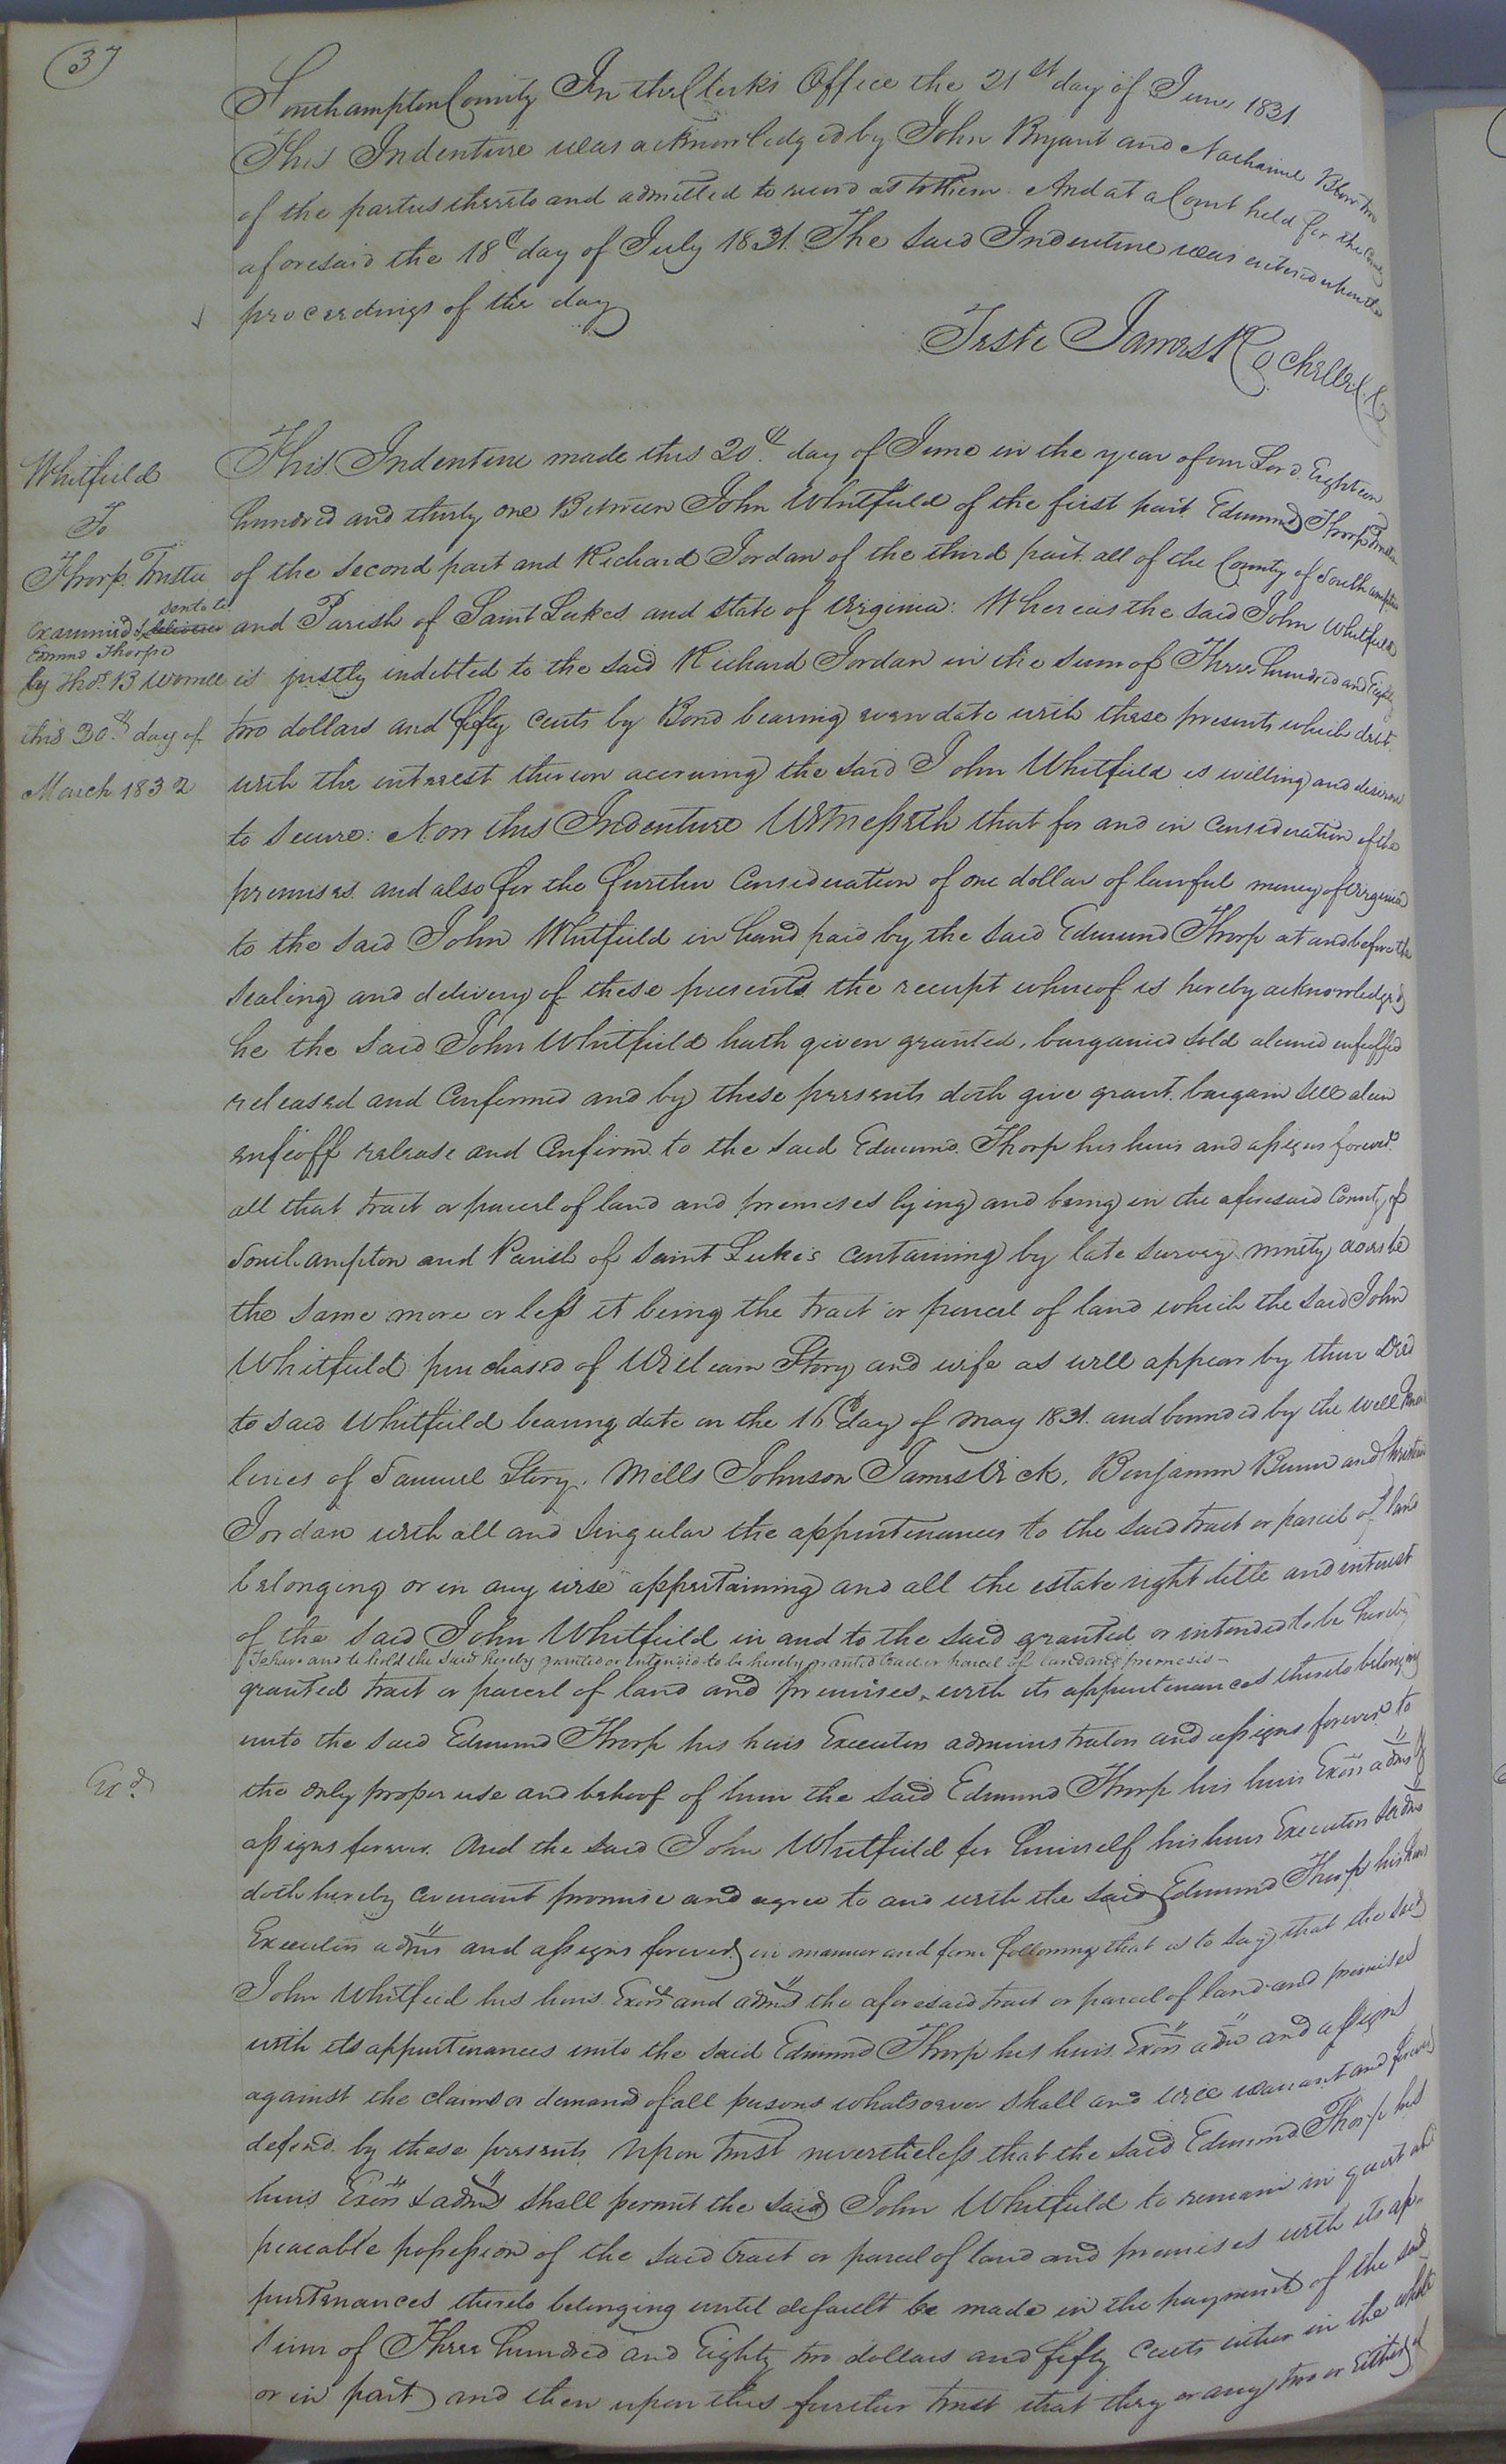 37
Southampton County In the Clerks Office the 21st day of June 1831.
This Indenture was acknowledged by John Bryant and two
of the parties thereto and admitted to record as to them. And at a Court held for the County
aforesaid the 18th day of July 1831. The said Indenture was entered upon the
proceedings of the day
Teste James Rochelle C.C.
Whitfield
To
Thorp Trustee
Examined & delivered sent to
Edmund Thorpe
by Thos. B Worrell
this 30th day of
March 1832
This Indenture made this 20th day of June in the year of our Lord Eighteen
hundred and thirty one Between John Whitfield of the first part Edmund Thorp Trustee
of the second part and Richard Jordan of the third part all of the County of Southampton
and Parish of Saint Lukes and state of Virginia: Whereas the said John Whitfield
is justly indebted to the said Richard Jordan in the sum of Three hundred and Eighty
two dollars and fifty cents by Bond bearing even date with these presents which debt
with the interest thereon accruing the said John Whitfield is willing and desirous
to secure: Now this Indenture Witnesseth that for and in consideration of the
premises and also for the further consideration of one dollar of lawful money of Virginia
to the said John Whitfield in hand paid by the said Edmund Thorp at and before the
sealing and delivery of these presents the receipt whereof is hereby acknowledged
he the said John Whitfield hath given granted, bargained sold aliened enfeoffed
released and confirmed and by these presents doth give grant bargain sell alien
enfeoff release and confirm to the said Edmund Thorp his heirs and assigns forever
all that tract or parcel of land and premises lying and being in the aforesaid County of
Southampton and Parish of Saint Lukes containing by late survey ninety acres be
the same more or less it being the tract or parcel of land which the said John
Whitfield purchased of William Story and wife as will appear by their deed
to said Whitfield bearing date on the 16th day of May 1831. and bounded by the well known
lines of Samuel Story, Mills Johnson James Vick, Benjamin Bunn and
Jordan with all and singular the appurtenances to the said tract or parcel of land
belonging or in any wise appertaining and all the estate right title and interest
of the said John Whitfield in and to the said granted or intended to be hereby
To have and to hold the said hereby granted or intended to be hereby granted tract or parcel of land and premises
granted tract or parcel of land and premises, with its appurtenances thereto belonging
unto the said Edmund Thorp his heirs Executors administrators and assigns forever to
the only proper use and behoof of him the said Edmund Thorp his heirs Exors admrs &
Exd.
assigns forever. And the said John Whitfield for himself his heirs Executors & admrs
doth hereby covenant promise and agree to and with the said Edmund Thorp his heirs
Executors admrs and assigns forever in manner and form following that is to say that the said
John Whitfied his heirs Exors and admrs the aforesaid tract or parcel of land and premises
with its appurtenances unto the said Edmund Thorp his heirs Exors admrs and assigns
against the claims or demands of all persons whatsoever shall and will warrant and forever
defend by these presents Upon trust nevertheless that the said Edmund Thorp his
heirs Exors & admrs shall permit the said John Whitfield to remain in quiet and
peaceable possession of the said tract or parcel of land and premises with its ap-
purtenances thereto belonging until default be made in the payment of the said
sum of Three hundred and Eighty two dollars and fifty Cents either in the whole
or in part and then upon this further trust that they or any two or Either of